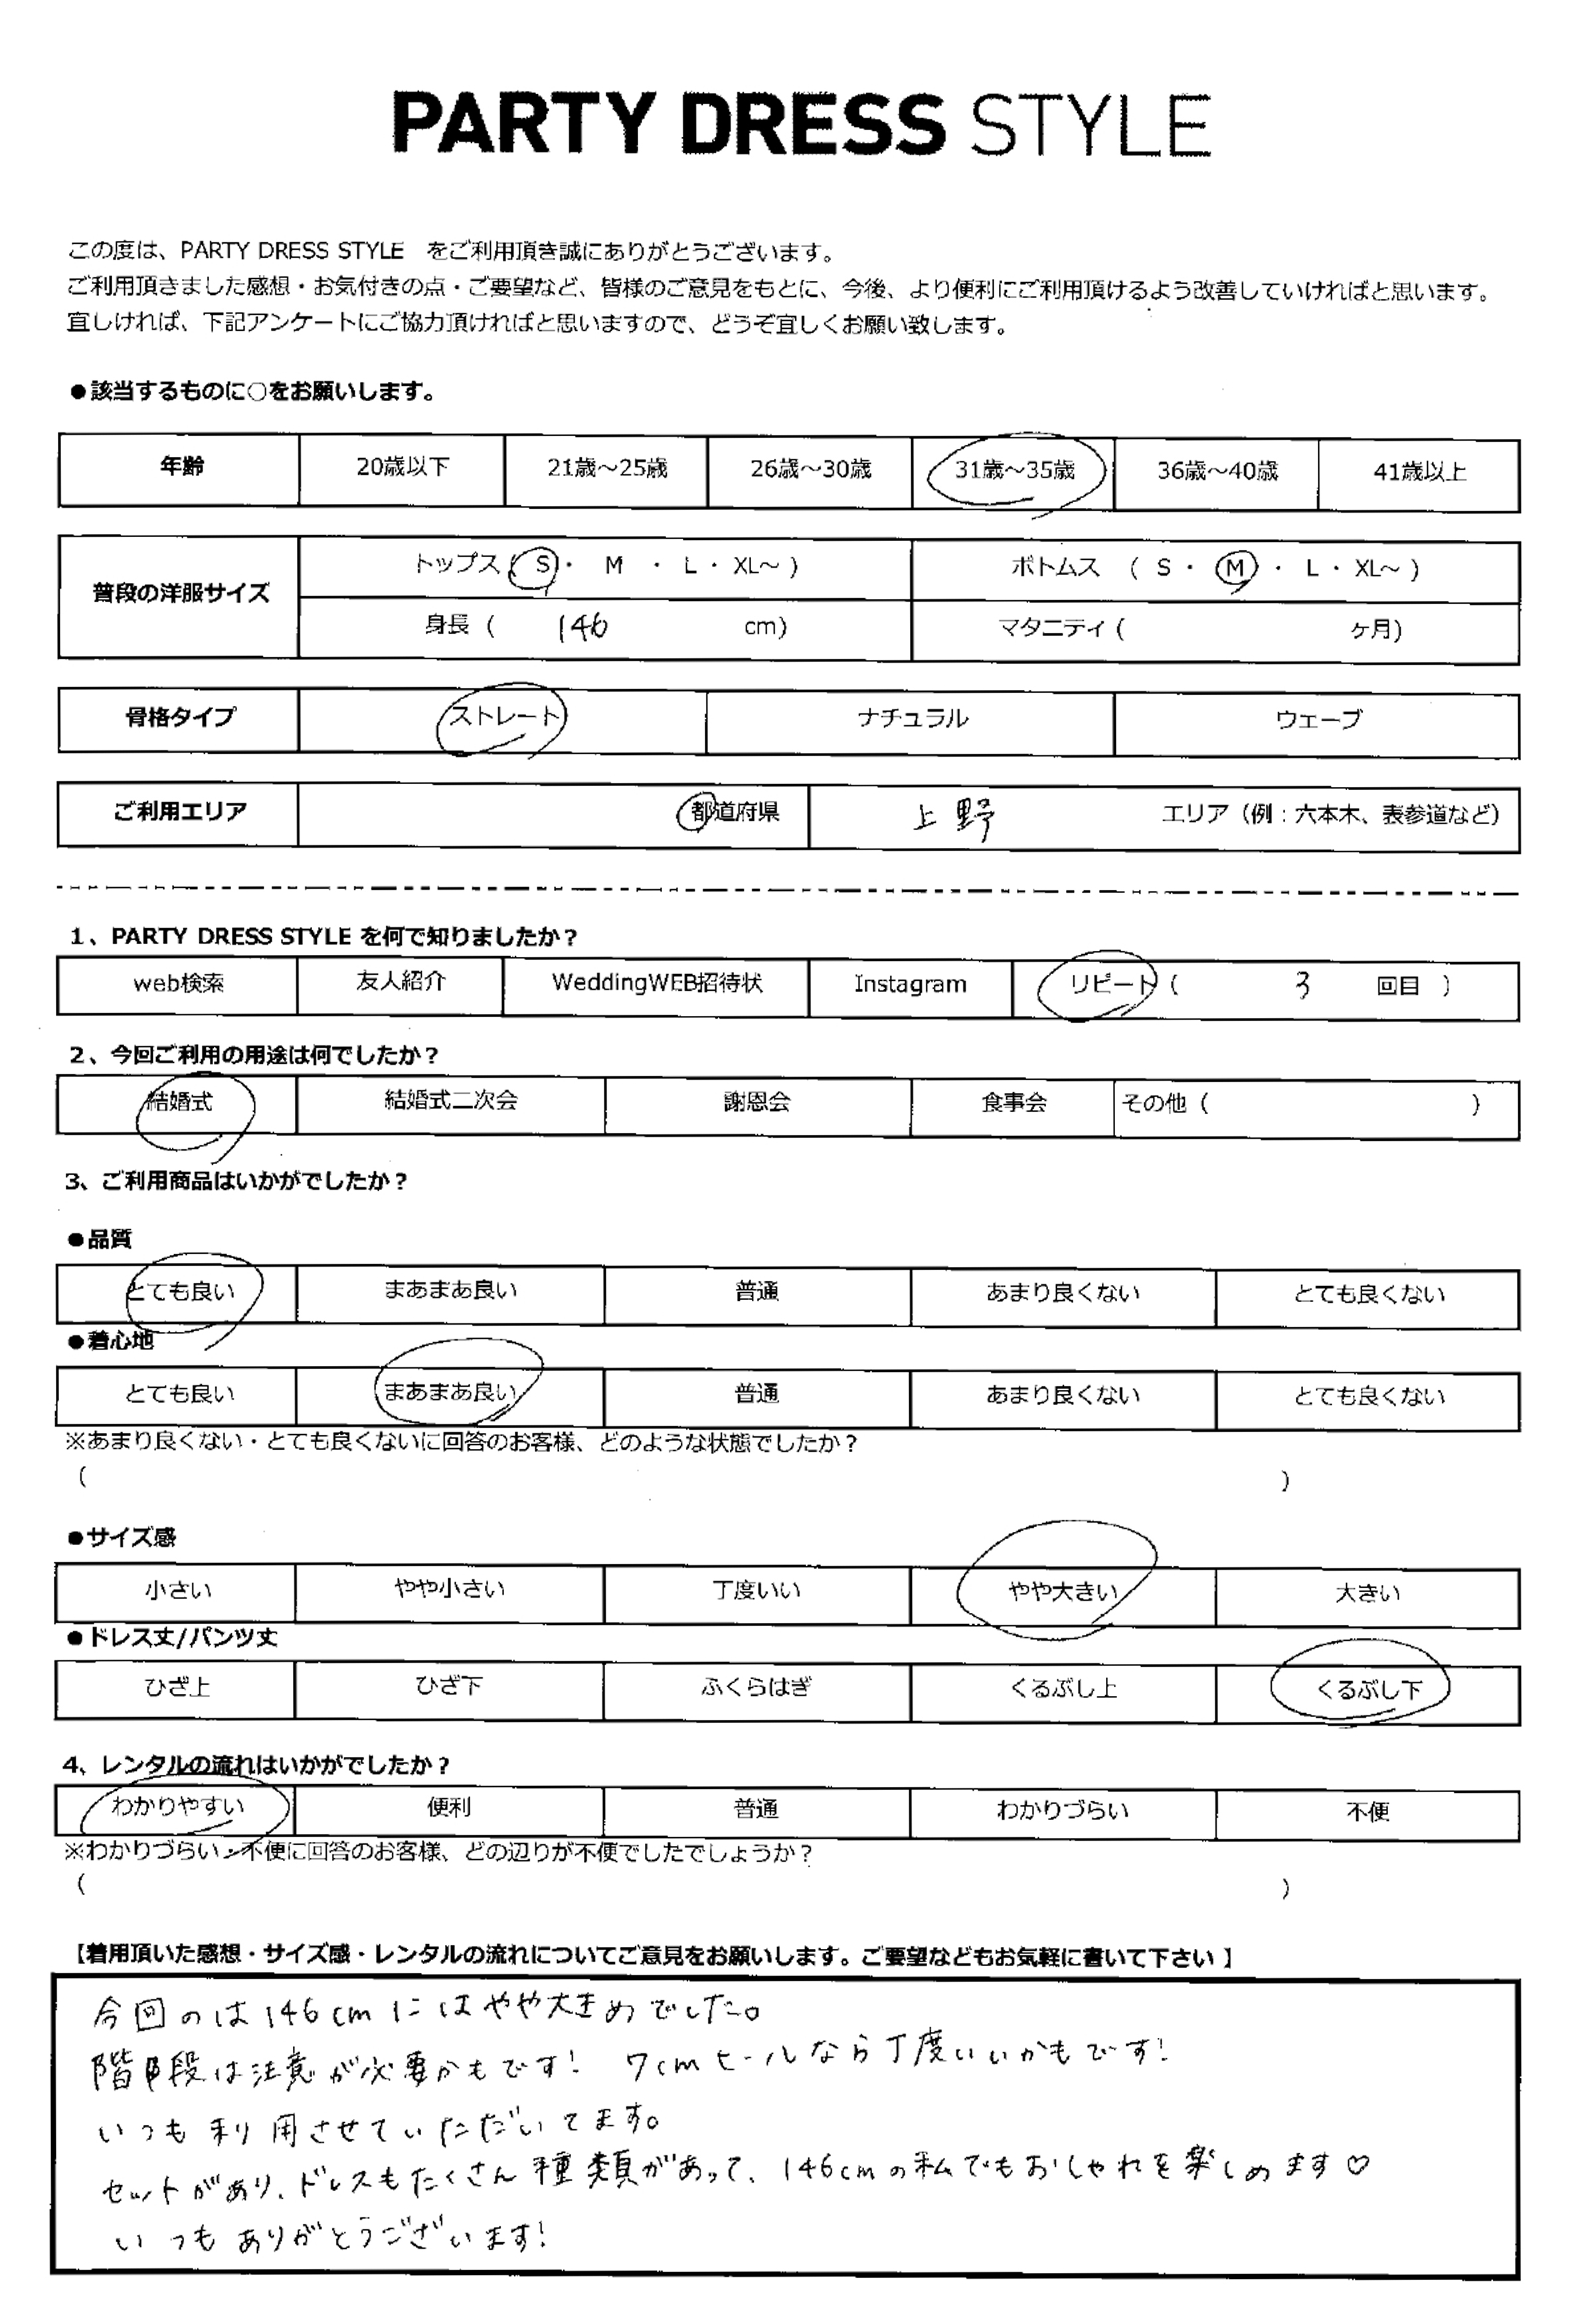 PARTY DRESS STYLE
この度は、PARTY DRESS STYLE をご利用頂き誠にありがとうございます。
ご利用頂きました感想・お気付きの点・ご要望など、皆様のご意見をもとに、今後、より便利にご利用頂けるよう改善していければと思います。
宜しければ、下記アンケートにご協力頂ければと思いますので、どうぞ宜しくお願い致します。
●該当するものに○をお願いします。
年齢 20歳以下 21歳～25歳 26歳～30歳 31歳～35歳 36歳～40歳 41歳以上
普段の洋服サイズ
トップス ( S ・ M ・ L ・ XL～ ) ボトムス ( S ・ M ・ L ・ XL～ )
身長 ( 146 cm) マタニティ ( ヶ月)
骨格タイプ ストレート ナチュラル ウェーブ
ご利用エリア 都道府県 上野 エリア（例：六本木、表参道など）
1、PARTY DRESS STYLE を何で知りましたか？
web検索 友人紹介 WeddingWEB招待状 Instagram リピート ( 3 回目 )
2、今回ご利用の用途は何でしたか？
結婚式 結婚式二次会 謝恩会 食事会 その他 ( )
3、ご利用商品はいかがでしたか？
●品質
とても良い まあまあ良い 普通 あまり良くない とても良くない
●着心地
とても良い まあまあ良い 普通 あまり良くない とても良くない
※あまり良くない・とても良くないに回答のお客様、どのような状態でしたか？
( )
●サイズ感
小さい やや小さい 丁度いい やや大きい 大きい
●ドレス丈/パンツ丈
ひざ上 ひざ下 ふくらはぎ くるぶし上 くるぶし下
4、レンタルの流れはいかがでしたか？
わかりやすい 便利 普通 わかりづらい 不便
※わかりづらい・不便に回答のお客様、どの辺りが不便でしたでしょうか？
( )
【着用頂いた感想・サイズ感・レンタルの流れについてご意見をお願いします。ご要望などもお気軽に書いて下さい 】
今回のは146cmにはやや大きめでした。
階段は注意が必要かもです！ 7cmヒールなら丁度いいかもです！
いつも利用させていただいてます。
セットがあり、ドレスもたくさん種類があって、146cmの私でもおしゃれを楽しめます♡
いつもありがとうございます！